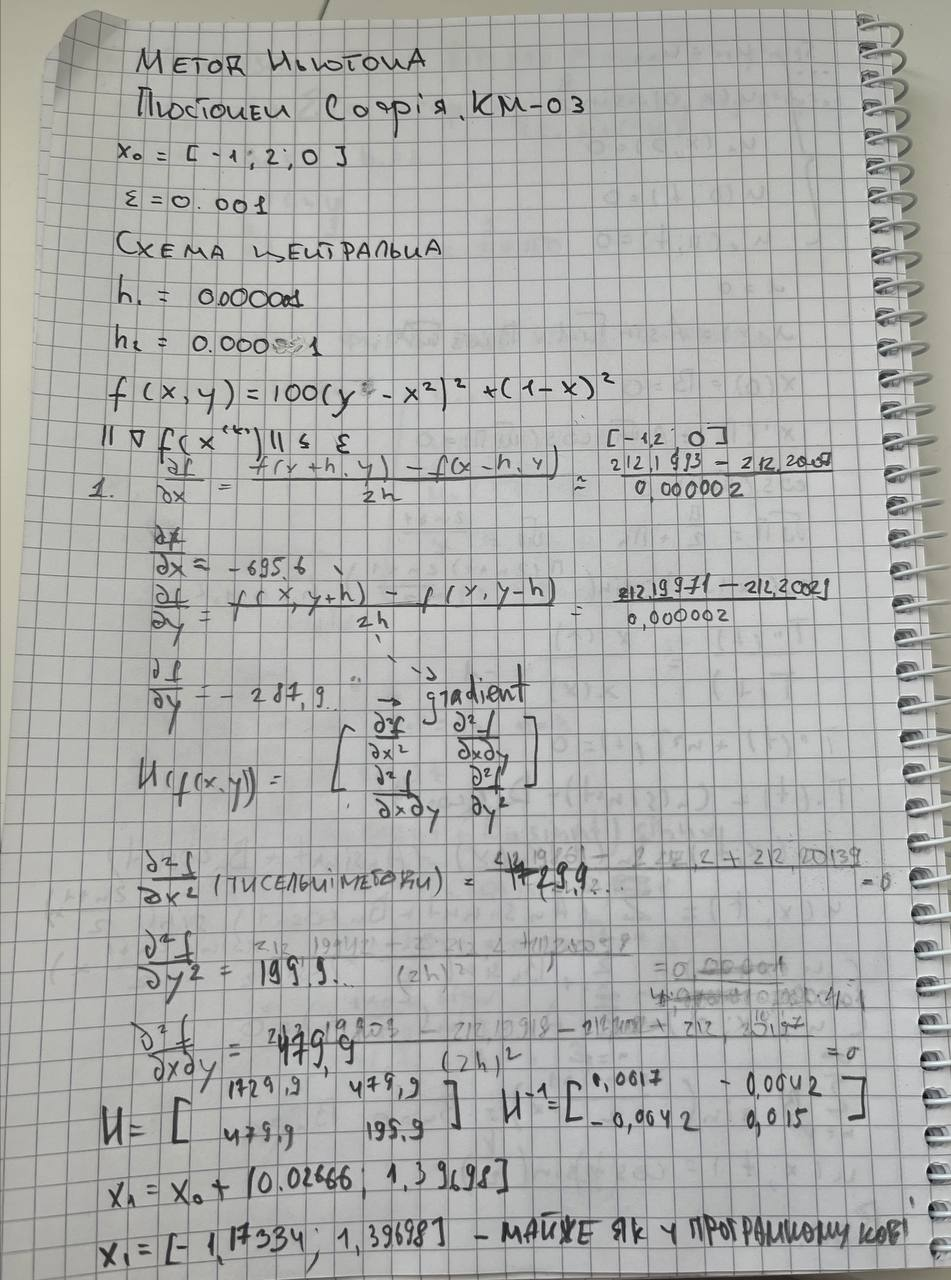 МЕТОД НЬЮТОНА
Софія. КМ-03
x₀ = [-1; 2; 0]
ε = 0.001
СХЕМА ЦЕНТРАЛЬНА
h₁ = 0.000001
h₂ = 0.000 1
f(x, y) = 100(y - x²)² + (1-x)²
|| ∇ f(x⁽ᵏ⁾) || ≤ ε [-1,2; 0]
1. ∂f/∂x = (f(x+h, y) - f(x-h, y))/2h ≈ (212,1993 - 212,2007)/0,000002
∂f/∂x = -695.6
∂f/∂y = (f(x, y+h) - f(x, y-h))/2h = (212,19971 - 212,20029)/0,000002
∂f/∂y = -287,9.. → gradient
H(f(x,y)) = [ ∂²f/∂x² ∂²f/∂x∂y
∂²f/∂x∂y ∂²f/∂y² ]
∂²f/∂x² (ЧИСЕЛЬНІ МЕТОДИ) = 1729,9... = 0
∂²f/∂y² = 199,9...
∂²f/∂x∂y = 479,9 (2h)² = 0
H = [ 1729,9 479,9
479,9 199,9 ] H⁻¹ = [ 0,0017 -0,0042
-0,0042 0,015 ]
x₁ = x₀ + [0.02666; 1,39698]
x₁ = [-1,17334; 1,39698] - МАЙЖЕ ЯК У ПРОГРАМНОМУ КОДІ